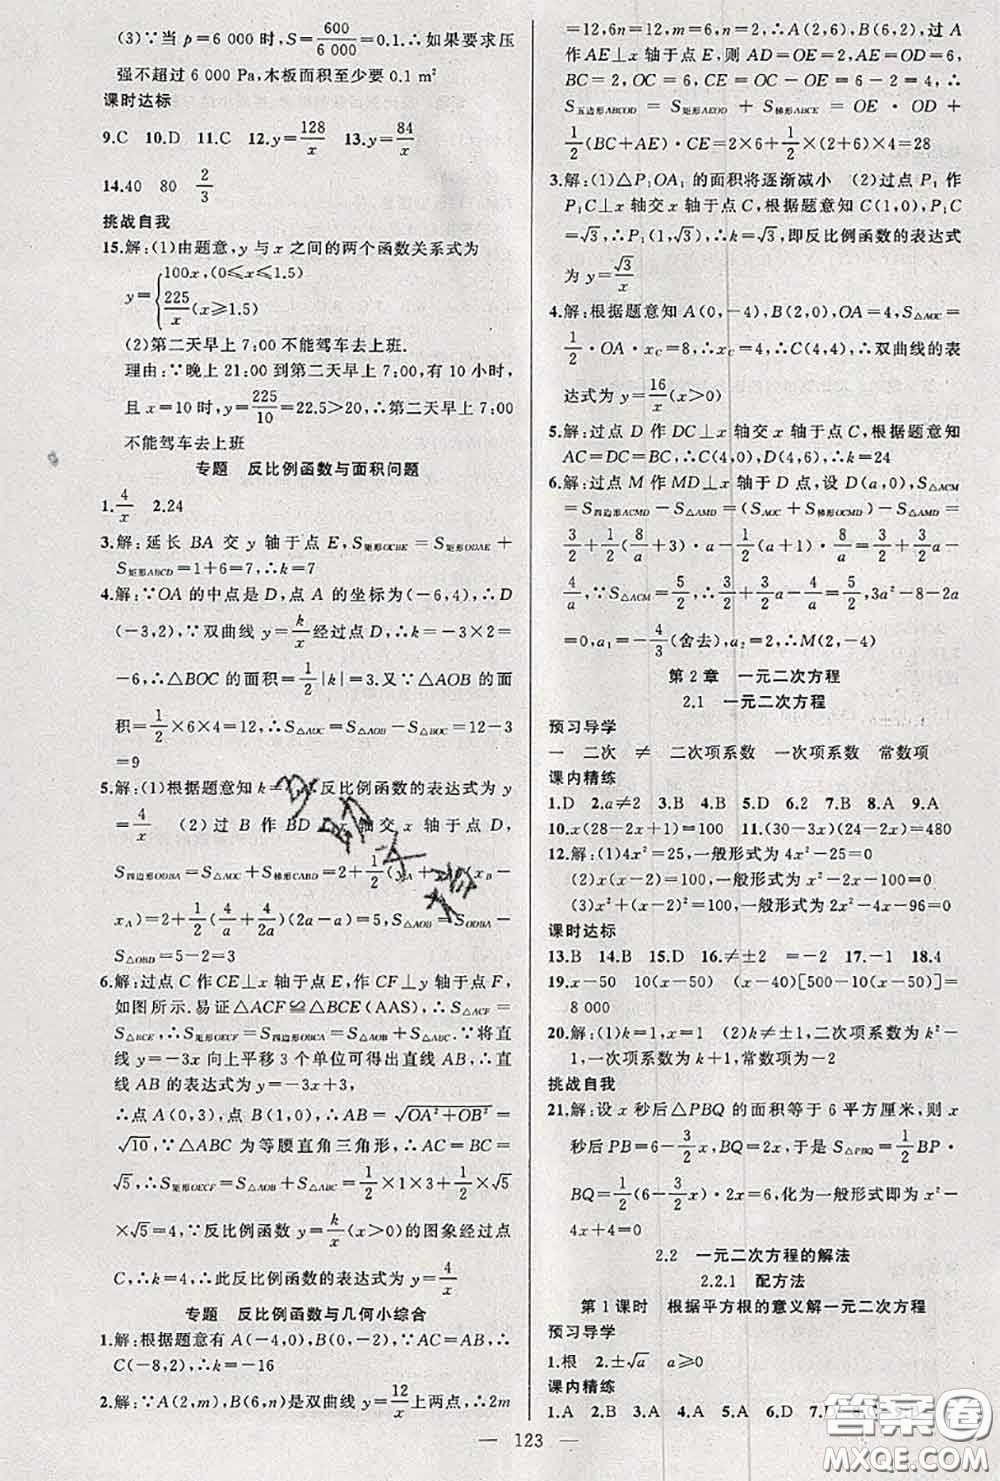 (3)∵当 p=6 000 时,S=600/6 000=0.1.∴如果要求压
强不超过 6 000 Pa,木板面积至少要 0.1 m²
课时达标
9.C 10.D 11.C 12.y=128/x 13.y=84/x
14.40 80 2/3
挑战自我
15.解:(1)由题意,y 与 x 之间的两个函数关系式为
y={100x,(0≤x≤1.5)
225/x(x≥1.5)
(2)第二天早上 7:00 不能驾车去上班.
理由:∵晚上 21:00 到第二天早上 7:00,有 10 小时,
且 x=10 时,y=225/10=22.5>20,∴第二天早上 7:00
不能驾车去上班
专题 反比例函数与面积问题
1.4/x 2.24
3.解:延长 BA 交 y 轴于点 E,S矩形OCBE=S矩形ODAE+
S矩形ABCD=1+6=7,∴k=7
4.解:∵OA 的中点是 D,点 A 的坐标为(-6,4),∴D
(-3,2),∵双曲线 y=k/x经过点 D,∴k=-3×2=
-6,∴△BOC 的面积=1/2|k|=3.又∵△AOB 的面
积=1/2×6×4=12,∴S△AOC=S△AOB-S△BOC=12-3
=9
5.解:(1)根据题意知 k= ∴反比例函数的表达式为 y
=4/x (2)过 B 作 BD⊥x 轴交 x 轴于点 D,
S四边形ODBA=S△ +S梯形CABD=2+1/2(yA+yB)(xB-
xA)=2+1/2(4/a+4/2a)(2a-a)=5,S△AOB=SODBA-
S△OBD=5-2=3
6.解:过点 C 作 CE⊥x 轴于点 E,作 CF⊥y 轴于点 F,
如图所示.易证△ACF≌△BCE(AAS),∴S△ACF=
S△BCE,∴S矩形OECF=S四边形OBCA=S△AOB+S△ABC.∵将直
线 y=-3x 向上平移 3 个单位可得出直线 AB,∴直
线 AB 的表达式为 y=-3x+3,
∴点 A(0,3),点 B(1,0),∴AB=√OA²+OB²=
√10,∵△ABC 为等腰直角三角形,∴AC=BC=
√5,∴S矩形OECF=S△AOB+S△ABC=1/2×1×3+1/2×√5
×√5=4.∵反比例函数 y=k/x(x>0)的图象经过点
C,∴k=4,∴此反比例函数的表达式为 y=4/x
专题 反比例函数与几何小综合
1.解:根据题意有 A(-4,0),B(0,-2),∵AC=AB,∴
C(-8,2),∴k=-16
2.解:∵A(2,m),B(6,n)是双曲线 y=12/x上两点,∴2m
=12,6n=12,m=6,n=2,∴A(2,6),B(6,2),过点 A
作 AE⊥x 轴于点 E,则 AD=OE=2,AE=OD=6,
BC=2,OC=6,CE=OC-OE=6-2=4,∴
S五边形ABCOD=S矩形AEOD+S梯形ABCE=OE·OD+
1/2(BC+AE)·CE=2×6+1/2×(2+6)×4=28
3.解:(1)△P₁OA₁的面积将逐渐减小 (2)过点 P₁作
P₁C⊥x 轴交 x 轴于点 C,根据题意知 C(1,0),P₁C
=√3,∴P₁(1,√3),∴k=√3,即反比例函数的表达式
为 y=√3/x
4.解:根据题意知 A(0,-4),B(2,0),OA=4,S△AOC=
1/2·OA·xC=8,∴xC=4,∴C(4,4),∴双曲线的表
达式为 y=16/x(x>0)
5.解:过点 D 作 DC⊥x 轴交 x 轴于点 C,根据题意知
AC=DC=OB=6,C(4,0),D(4,6),∴k=24
6.解:过点 M 作 MD⊥x 轴于 D 点,设 D(a,0),S△ACM
=S四边形ACMD-S△AMD=(S△AOC+S梯形OCMD)-S△AMD=
3/2+1/2(8/a+3)·a-1/2(a+1)·8/a=3/2+3/2a-
4/a,∵S△ACM=5/2,∴3/2+3/2a-4/a=5/2,3a²-8-2a
=0,a₁=-4/3(舍去),a₂=2,∴M(2,-4)
第 2 章 一元二次方程
2.1 一元二次方程
预习导学
一 二次 ≠ 二次项系数 一次项系数 常数项
课内精练
1.D 2.a≠2 3.B 4.B 5.D 6.2 7.B 8.A 9.A
10.x(28-2x+1)=100 11.(30-3x)(24-2x)=480
12.解:(1)4x²=25,一般形式为 4x²-25=0
(2)x(x-2)=100,一般形式为 x²-2x-100=0
(3)x²+(x-2)²=10²,一般形式为 x²-2x-48=0
课时达标
13.B 14.B 15.D 16.≠±2 =-2 17.-1 18.4
19.x-50 10(x-50) (x-40)[500-10(x-50)]=
8 000
20.解:(1)k=1,x=1 (2)k≠±1,二次项系数为 k²-
1,一次项系数为 k+1,常数项为-2
挑战自我
21.解:设 x 秒后△PBQ 的面积等于 6 平方厘米,则 x
秒后 PB=6-3/2x,BQ=2x,于是 S△PBQ=1/2BP·
BQ=1/2(6-3/2x)·2x=6,化为一般形式即为 x²-
4x+4=0
2.2 一元二次方程的解法
2.2.1 配方法
第 1 课时 根据平方根的意义解一元二次方程
预习导学
1.根 2.±√a a≥0
课内精练
1.A 2.C 3.C 4.D 5.A 6.D 7.
— 123 —
答案圈
MXQE.COM